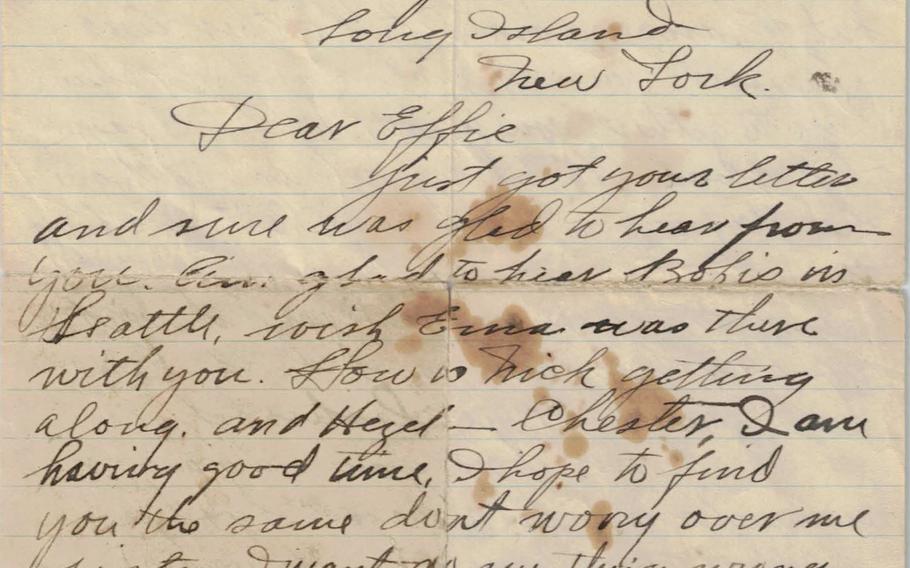 Long Island
New York.
Dear Effie
just got your letter
and sure was glad to hear from
you. Am glad to hear is in
Seattle, wish Erna was there
with you. How is Nick getting
along. and Hazel — Chester, I am
having good time, I hope to find
you the same dont worry over me
I want do any thing wrong